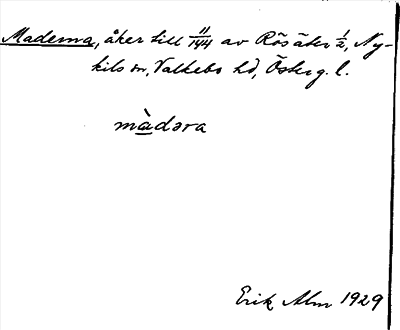 Maderna, åker till 11/144 av Rösäter 1/2, Ny-
kils sn, Valkebo hd, Österg. l.
màdəra
Erik Alm 1929